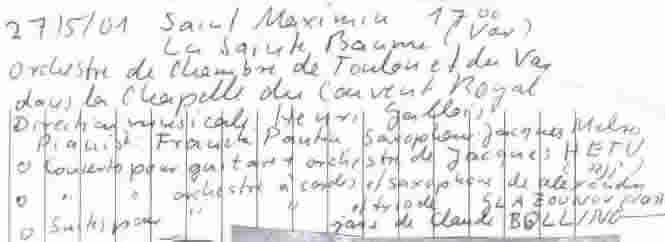 27/5/01 Saint Maximin 17 00
La Sainte Baume (Var)
Orchestre de Chambre de Toulon et du Var
dans la Chapelle du Couvent Royal
Direction musicale Henri Gallois
Pianist Saxophone Jacques Melzo
o Concerto pour guitare + orchestre de Jacques HETU
o " " orchestre à cordes et saxophone de alexandre
GLAZOUNOV
o Suites pour " " et trio de
jazz de Claude BOLLING